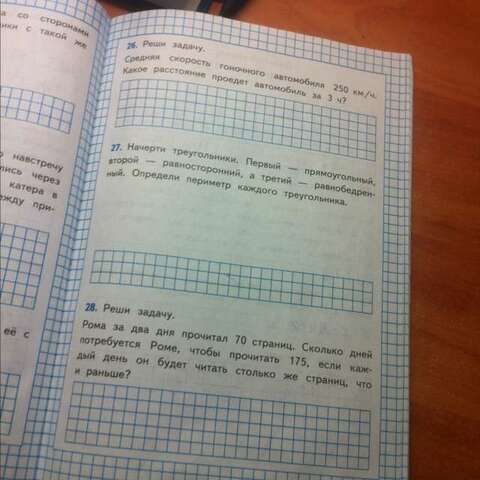 а со сторонами
ики с такой же
о навстречу
лись через
катера в
ежду при-
её с
26. Реши задачу.
Средняя скорость гоночного автомобиля 250 км/ч.
Какое расстояние проедет автомобиль за 3 ч?
27. Начерти треугольники. Первый — прямоугольный,
второй — равносторонний, а третий — равнобедрен-
ный. Определи периметр каждого треугольника.
28. Реши задачу.
Рома за два дня прочитал 70 страниц. Сколько дней
потребуется Роме, чтобы прочитать 175, если каж-
дый день он будет читать столько же страниц, что
и раньше?